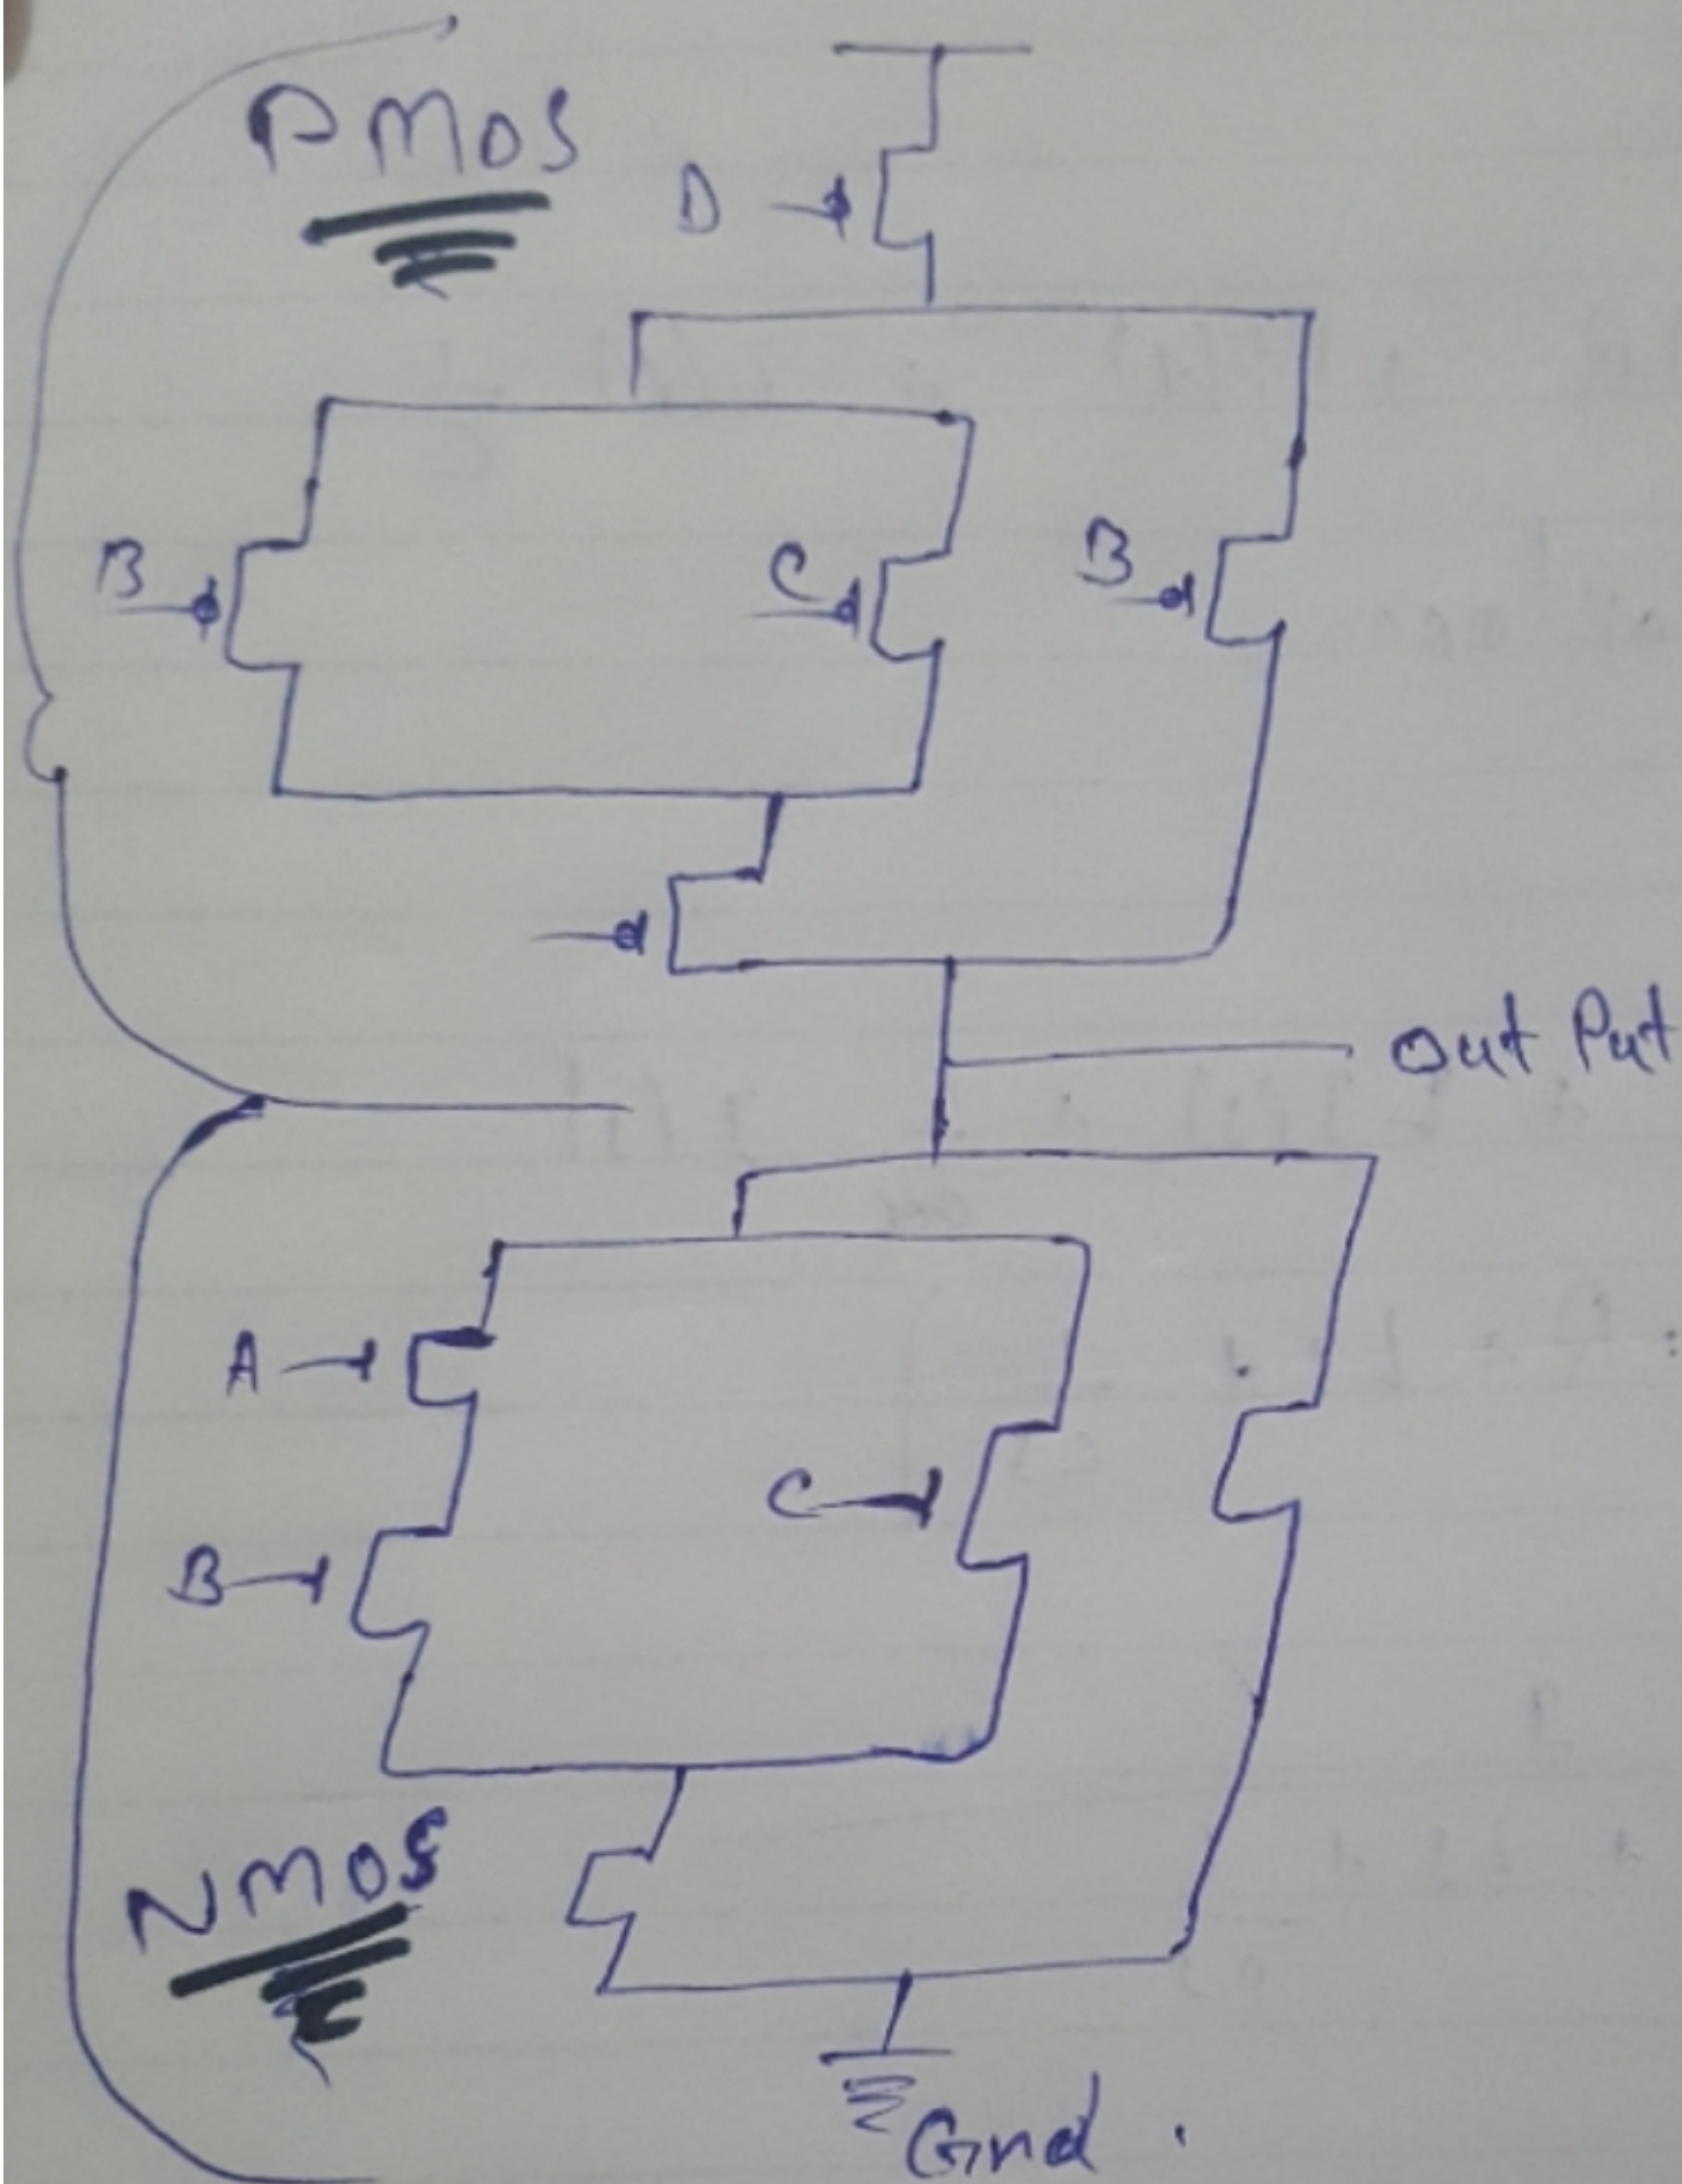 PMOS
D
B C B
Out Put
A
C
B
NMOS
Gnd.